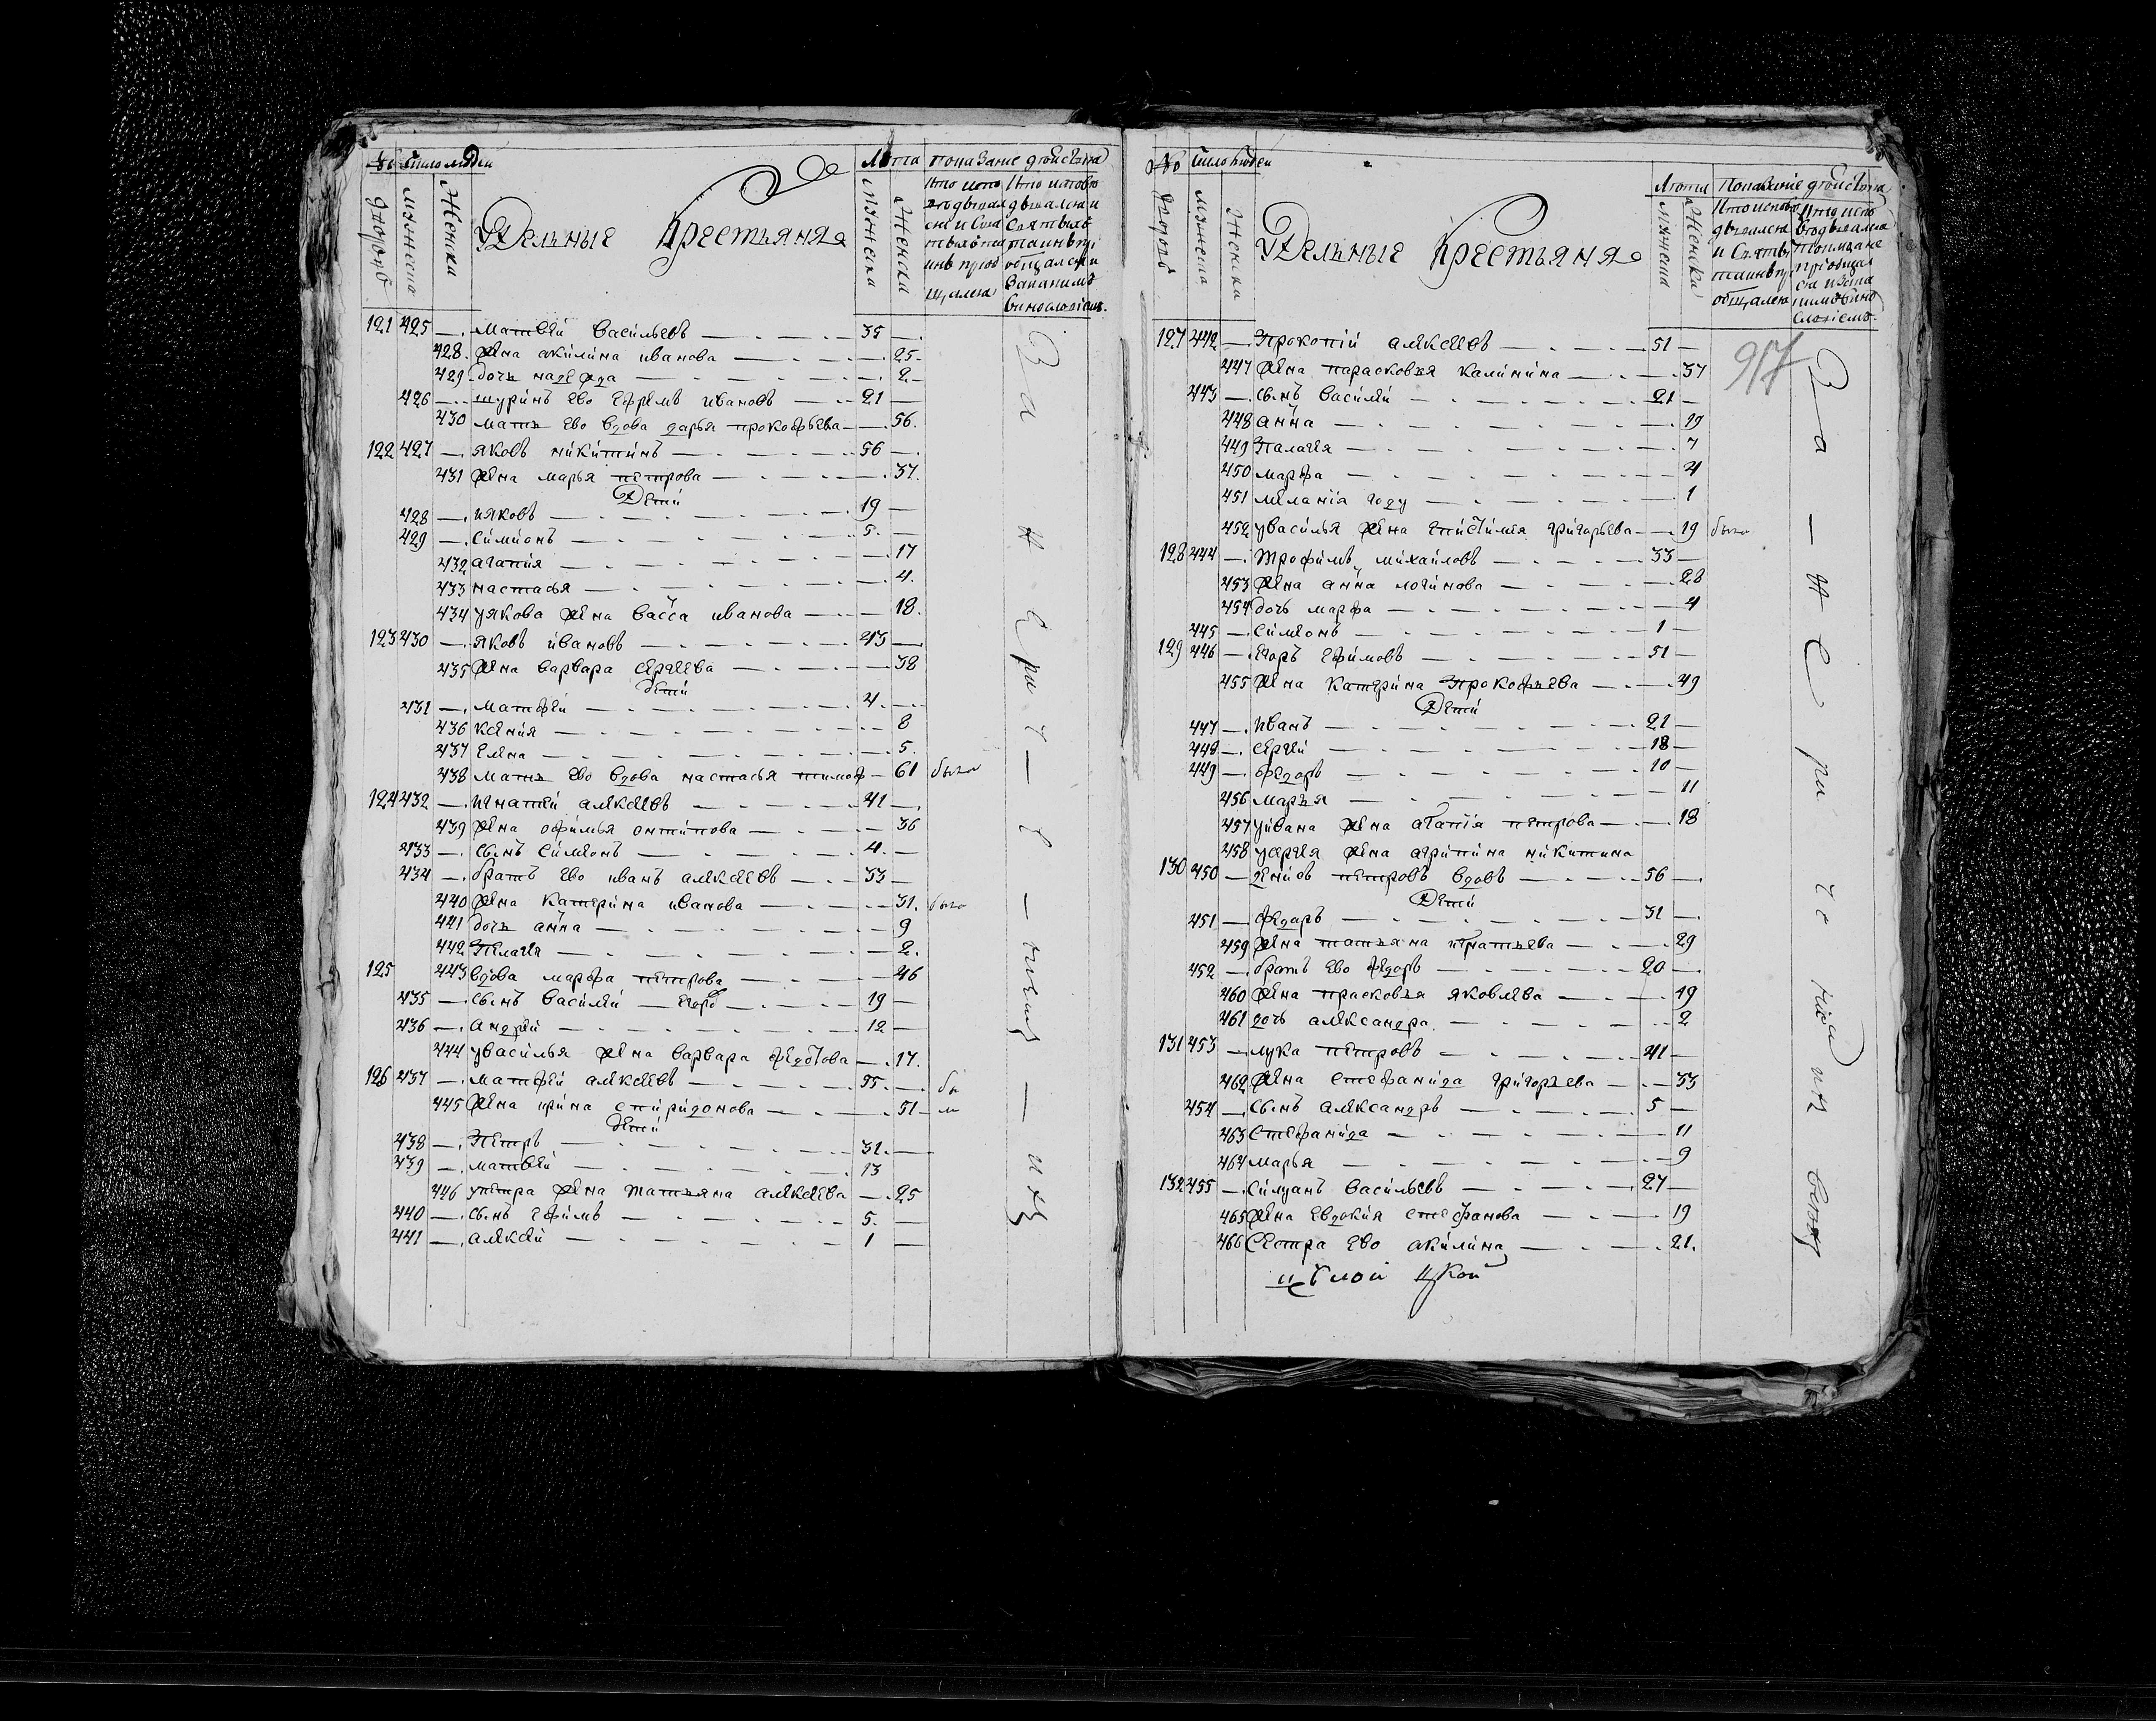 № Число людей
Лета показание действа
дворовъ
мужеска
Женска
Удельные Крестьяня
мужеска
Женска
121 425 — Матвей Васильевъ — 35 —
428 жена акилина иванова — 25
429 дочь надежда — 2
426 — шуринъ ево Ефремъ ивановъ — 21 —
430 мать ево вдова дарья прокофьева — 56
122 427 — яковъ никитинъ — 56 —
431 жена марья петрова — 37
Дети
428 — ияковъ — 19 —
429 — Симионъ — 5 —
432 агапия — 17
433 настасья — 4
434 уякова жена васса иванова — 18
123 430 — яковъ ивановъ — 43 —
435 жена варвара сергеева — 38
дети
431 — матфей — 4 —
436 ксения — 8
437 елена — 5
438 мать ево вдова настасья тимоф — 61 была
124 432 — игнатей алексеевъ — 41 —
439 жена офимья онтипова — 36
433 — сынъ Симеонъ — 4 —
434 — братъ ево иванъ алексеевъ — 33 —
440 жена катерина иванова — 31 была
441 дочь анна — 9
442 Пелагея — 2
125 443 вдова марфа петрова — 46
435 — сынъ василей — 19 —
436 — андрей — 12 —
444 увасилья жена варвара федотова — 17
126 437 — матфей алексеевъ — 55 — бы
445 жена ирина спиридонова — 51 — ли
дети
438 — Петръ — 32 —
439 — матвей — 13
446 упетра жена татьяна алексеева — 25
440 — сынъ ефимъ — 5 —
441 — алексей — 1 —
№ Число людей
Лета Показание действа
дворовъ
мужеска
Женска
Удельные Крестьяня
мужеска
Женска
917
127 442 — Прокопий алексеевъ — 51 —
447 жена парасковья калинина — 37
443 — сынъ василей — 21 —
448 анна — 19
449 Палагея — 7
450 марфа — 4
451 мелания году — 1
452 увасилья жена епистимея григорьева — 19 была
128 444 — Трофимъ михайловъ — 33 —
453 жена анна логинова — 28
454 дочь марфа — 4
445 — Симеонъ — 1 —
129 446 — Егоръ Ефимовъ — 51 —
455 жена катерина Прокофьева — 49
Дети
447 — иванъ — 21 —
448 — сергей — 18 —
449 — федоръ — 10 —
456 марья — 11
457 уивана жена агапия петрова — 18
458 усергея жена агрипина никитина
130 450 — денисъ петровъ вдовъ — 56 —
Дети
451 — федаръ — 31 —
459 жена татьяна игнатьева — 29
452 — братъ ево федоръ — 20 —
460 жена прасковья яковлева — 19
461 дочь александра — 2
131 453 — лука петровъ — 41 —
462 жена стефанида григорьева — 33
454 — сынъ александръ — 5 —
463 Стефанида — 11
464 марья — 9
132 455 — силуанъ васильевъ — 27 —
465 жена евдокия стефанова — 19
466 Сестра ево акилина — 21